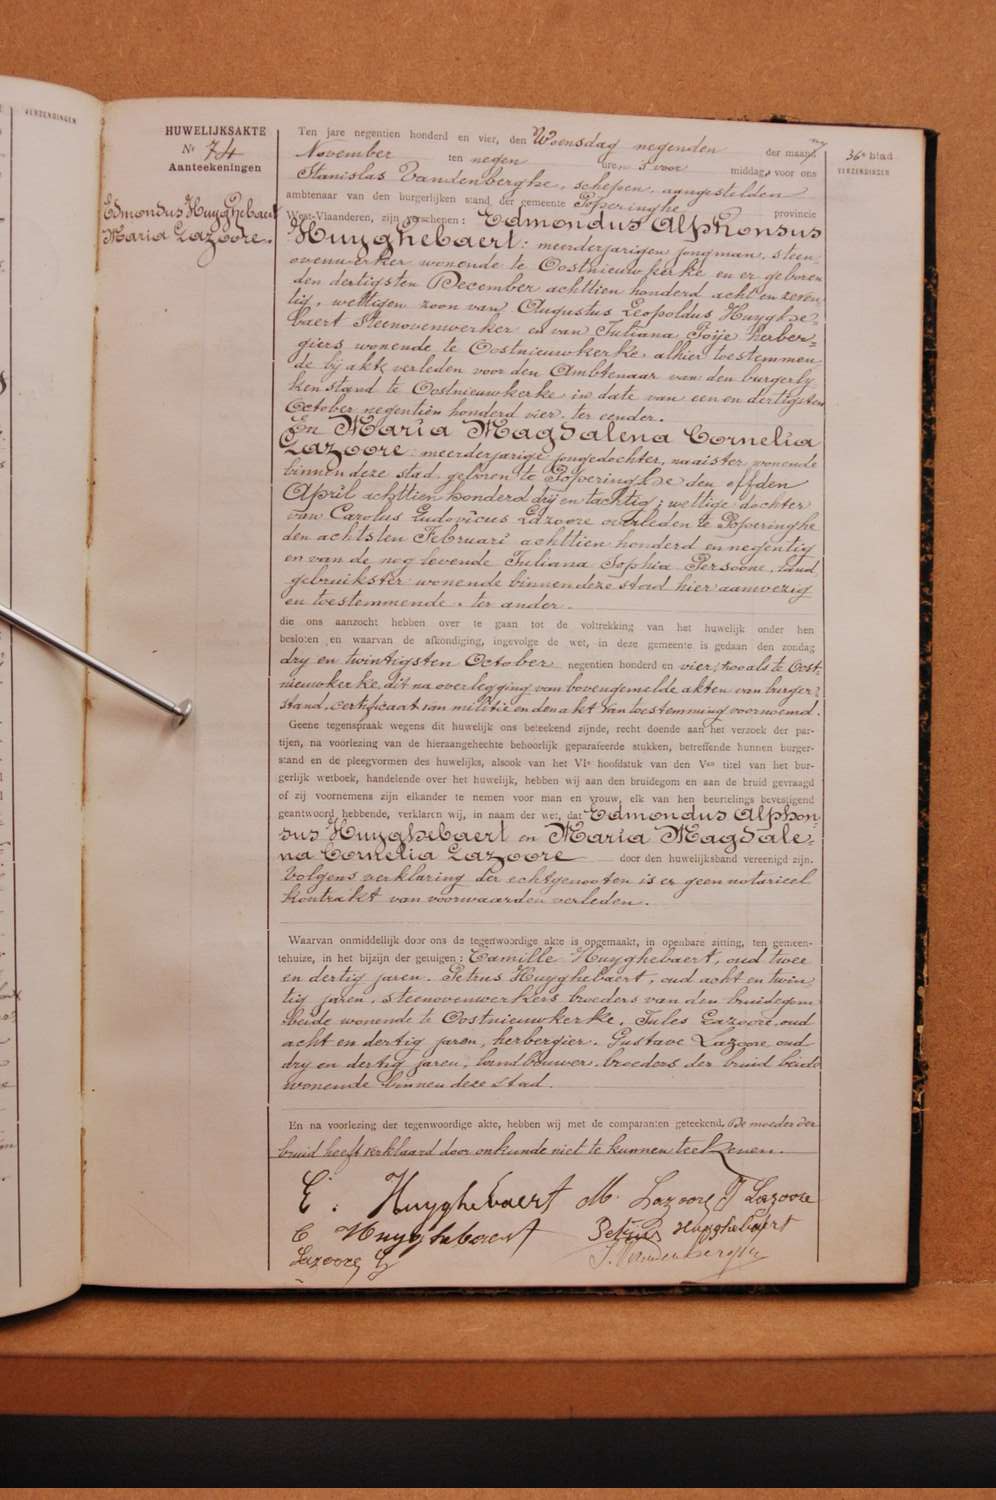 VERZENDINGEN
HUWELIJKSAKTE
Nr 74
Aanteekeningen
Edmondus Huyghebaert
Maria Lazoore.
36e blad
VERZENDINGEN
Ten jare negentien honderd en vier, den Woensdag negenden der maand
November ten negen uren voor middag, voor ons
Stanislas Vandenberghe, schepen, aangestelden
ambtenaar van den burgerlijken stand der gemeente Poperinghe provincie
West-Vlaanderen, zijn verschenen: Edmondus Alphonsus
Huyghebaert: meerderjarigen jongman, steen-
ovenwerker wonende te Oostnieuwkerke en er geboren
den dertigsten December achttien honderd acht en zeven
tig, wettigen zoon van Augustus Leopoldus Huyghe-
baert steenovenwerker en van Juliana Foije herber-
giers wonende te Oostnieuwkerke, alhier toestemmen
de bij akte verleden voor den Ambtenaar van den burgerly
ken stand te Oostnieuwkerke in date van een en dertigsten
October negentien honderd vier, ter eender.
En Maria Magdalena Cornelia
Lazoore: meerderjarige jongedochter, naaister wonende
binnen deze stad, geboren te Poperinghe den elfden
April achttien honderd drij en tachtig; wettige dochter
van Carolus Ludovicus Lazoore overleden te Poperinghe
den achtsten Februari achttien honderd en negentig
en van de nog levende Juliana Sophia Persoone, land
gebruikster wonende binnen deze stad hier aanwezig
en toestemmende, ter ander.
die ons aanzocht hebben over te gaan tot de voltrekking van het huwelijk onder hen
besloten en waarvan de afkondiging, ingevolge de wet, in deze gemeente is gedaan den zondag
dry en twintigsten October negentien honderd en vier, zoo als te Oost-
nieuwkerke, dit na overlegging van bovengemelde akten van burger-
stand, certificaat van militie en den akt van toestemming voornoemd.
Geene tegenspraak wegens dit huwelijk ons beteekend zijnde, recht doende aan het verzoek der par-
tijen, na voorlezing van de hieraangehechte behoorlijk geparafeerde stukken, betreffende hunnen burger-
stand en de pleegvormen des huwelijks, alsook van het VIe hoofdstuk van den Ven titel van het bur-
gerlijk wetboek, handelende over het huwelijk, hebben wij aan den bruidegom en aan de bruid gevraagd
of zij voornemens zijn elkander te nemen voor man en vrouw, elk van hen beurtelings bevestigend
geantwoord hebbende, verklaren wij, in naam der wet, dat Edmondus Alphon-
sus Huyghebaert en Maria Magdale-
na Cornelia Lazoore door den huwelijksband vereenigd zijn.
Volgens verklaring der echtgenooten is er geen notarieel
kontrakt van voorwaarden verleden.
Waarvan onmiddellijk door ons de tegenwoordige akte is opgemaakt, in openbare zitting, ten gemeen-
tehuize, in het bijzijn der getuigen: Camille Huyghebaert, oud twee
en dertig jaren. Petrus Huyghebaert, oud acht en twin-
tig jaren, steenovenwerkers broeders van den bruidegom
beide wonende te Oostnieuwkerke. Jules Lazoore, oud
acht en dertig jaren, herbergier. Gustave Lazoore oud
dry en dertig jaren, landbouwer, broeders der bruid beide
wonende binnen deze stad.
En na voorlezing der tegenwoordige akte, hebben wij met de comparanten geteekend. De moeder der
bruid heeft verklaard door onkunde niet te kunnen teekenen.
E. Huyghebaert M. Lazoore J Lazoore
C Huyghebaert Petrus Huyghebaert
Lazoore G S. Vandenberghe